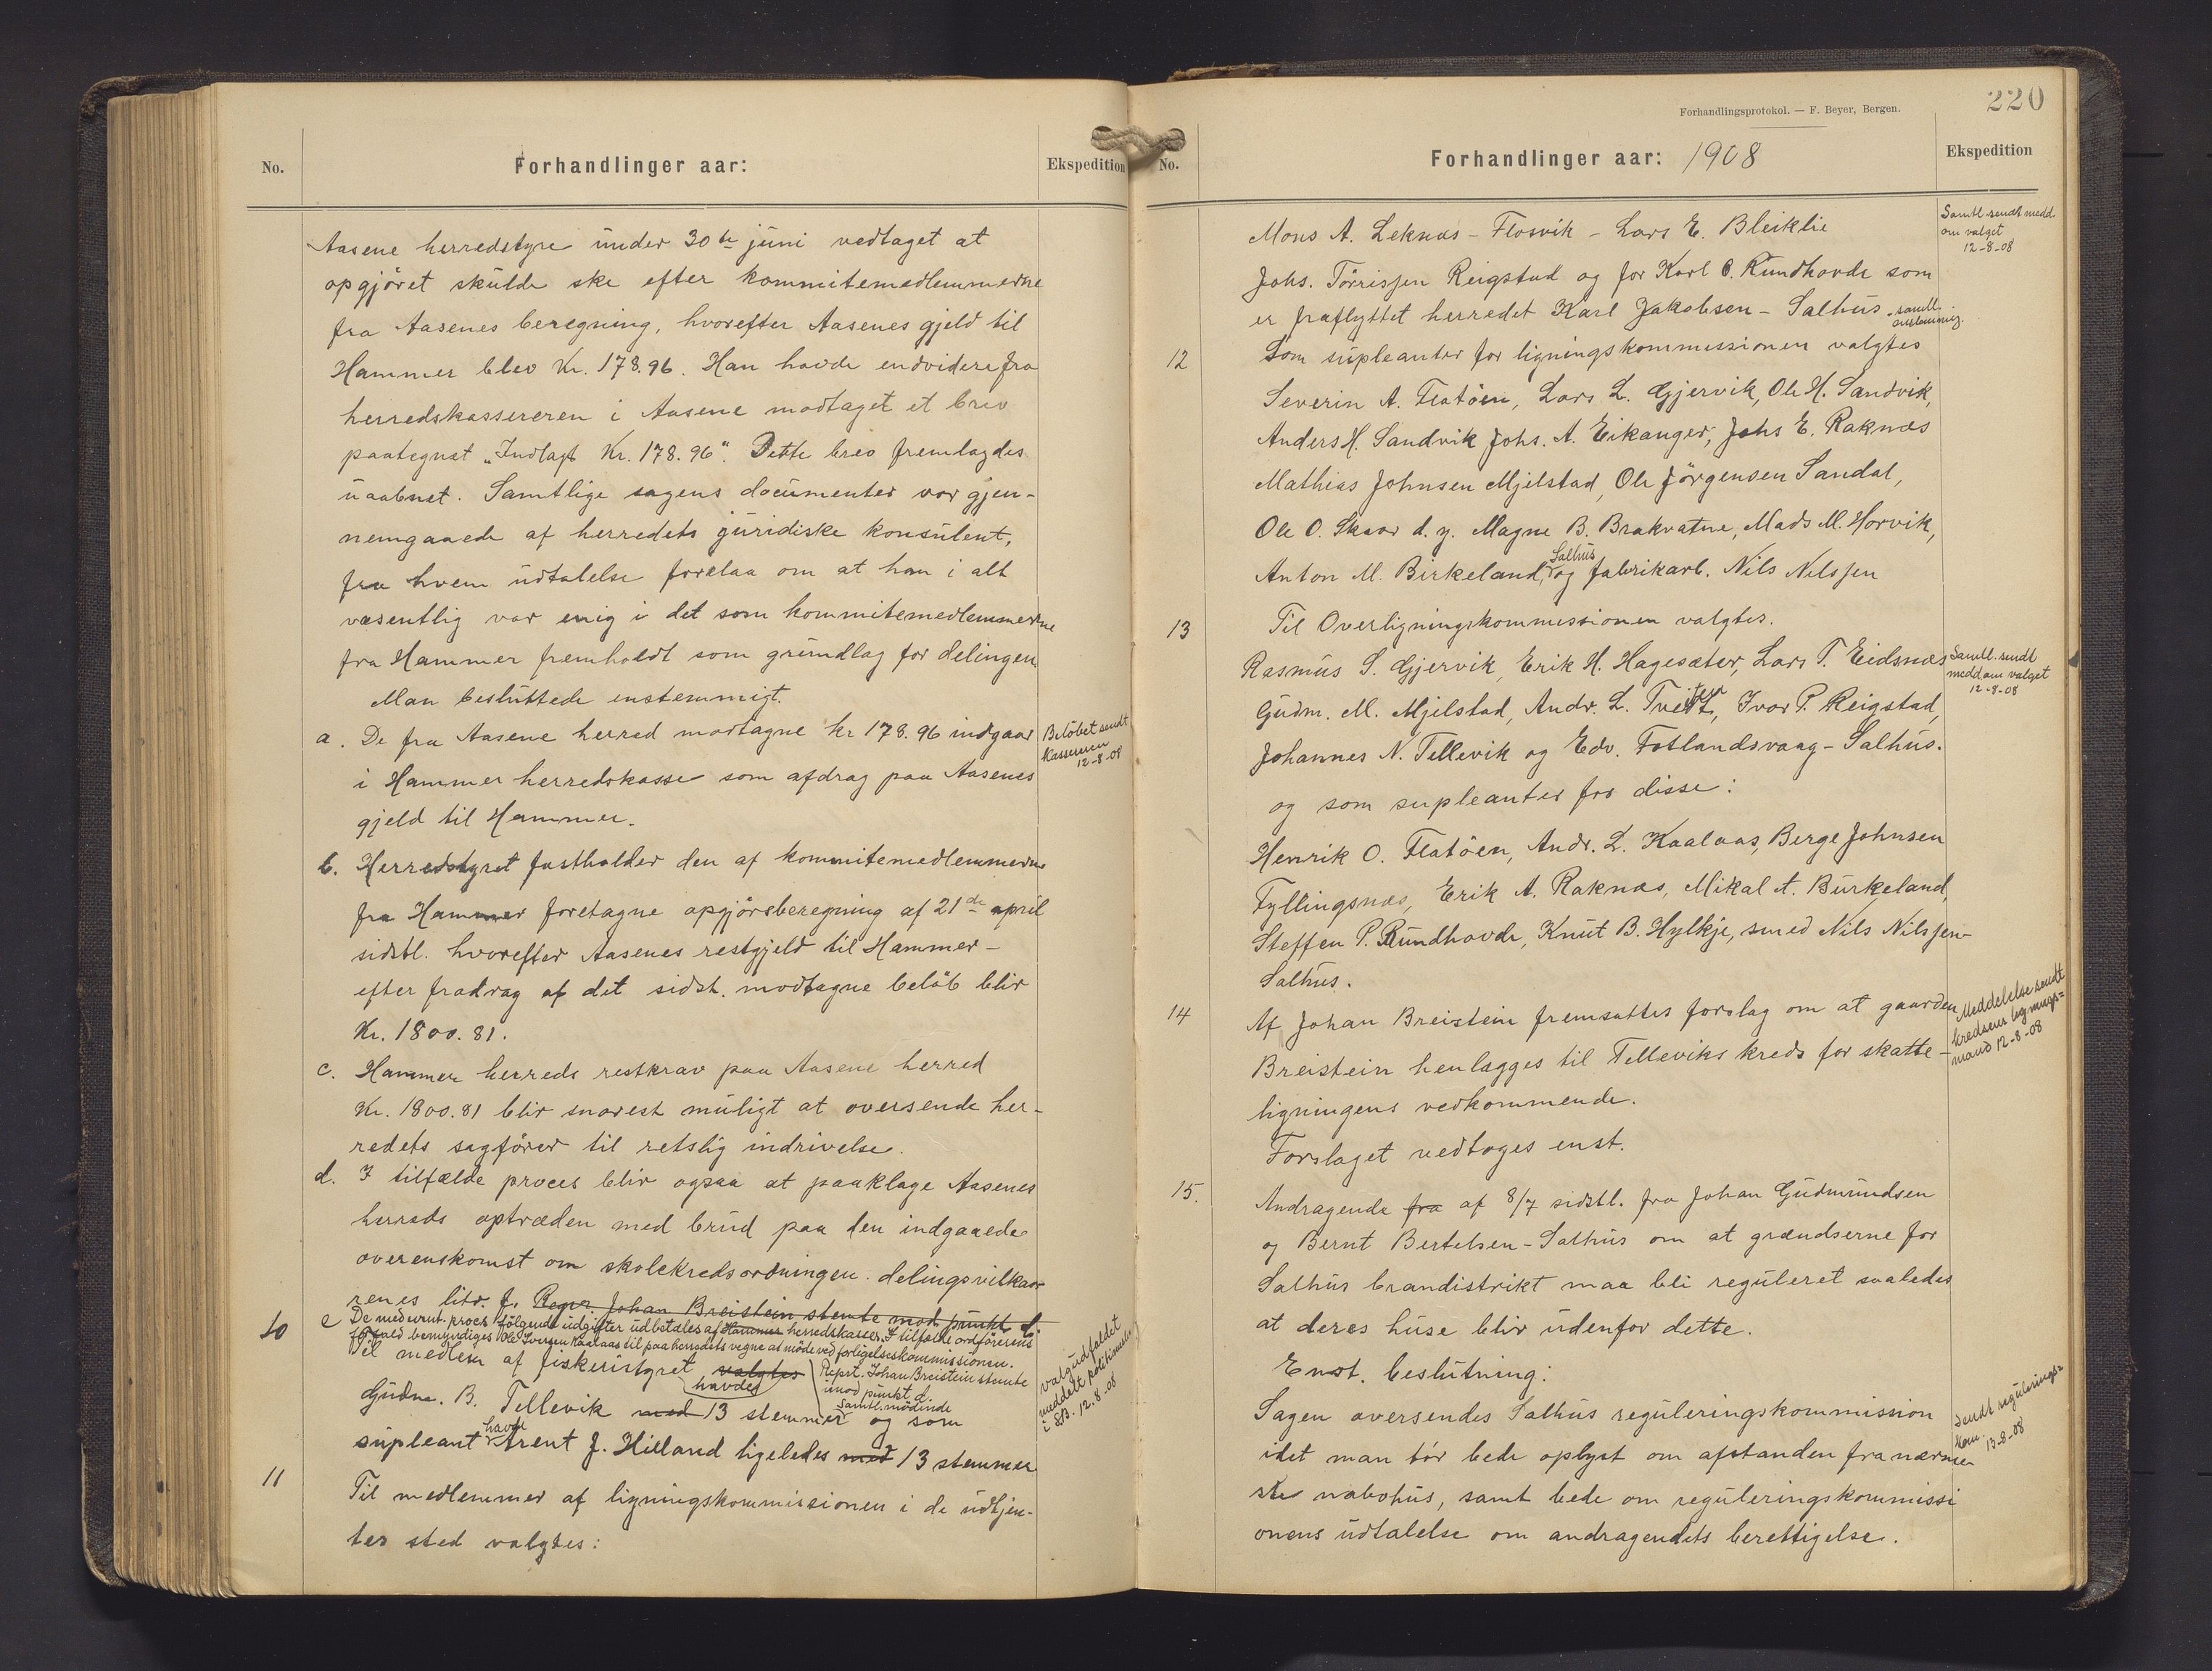 No.
Forhandlinger aar:
Ekspedition
Aasene herredstyre under 30te juni vedtaget at
opgjöret skulde ske efter kommitemedlemmerne
fra Aasenes beregning, hvorefter Aasenes gjeld til
Hammer blev Kr. 178.96. Han havde endvidere fra
herredskassereren i Aasene modtaget et brev
paategnet „Indlagt Kr. 178.96“. Dette brev fremlagdes
uaabnet. Samtlige sagens documenter var gjen-
nemgaaede af herredets juridiske konsulent,
fra hvem udtalelse forelaa om at han i alt
væsentlig var enig i det som kommitemedlemmerne
fra Hammer fremholdt som grundlag for delingen.
Man besluttede enstemmigt.
a. De fra Aasene herred modtagne kr 178.96 indgaar
i Hammer herredskasse som afdrag paa Aasenes
gjeld til Hammer.
Belöbet sendt
Kassereren
12-8-08
b. Herredstyret fastholder den af kommitemedlemmerne
fra Hammer foretagne opgjörsberegning af 21de april
sidstl. hvorefter Aasenes restgjeld til Hammer -
efter fradrag af det sidst. modtagne belöb blir
Kr. 1800.81.
c. Hammer herreds restkrav paa Aasene herred
Kr. 1800.81 blir snarest muligt at oversende her-
redets sagförer til retslig indrivelse.
d. I tilfælde proces blir ogsaa at paaklage Aasenes
herreds optræden med brud paa den indgaaede
overenskomst om skolekredsordningen. delingsvilkaa-
renes litr. f. Repr. Johan Breistein stemte mod punkt d.
e De med evnt. proces fölgende udgifter udbetales af Hammer herredskasse. I tilfælde ordförerens
forfald bemyndiges Ole Iversen Kaalaas til paa herredets vegne at möde ved forligelseskommissionen.
10
Til medlem af fiskeristyret valgtes havde
Reprt. Johan Breistein stemte
imod punkt d.
Gudm. B. Tellevik med 13 stemmer samtl. mödende og som
supleant havde Arent J. Hilland ligeledes med 13 stemmer
valgudfaldet
meddelt politimester
i SB. 12.8-08
11
Til medlemmer af ligningskommissionen i de udtjen-
tes sted valgtes:
220
Forhandlingsprotokol. — F. Beyer, Bergen.
No.
Forhandlinger aar: 1908
Ekspedition
Mons A. Leknæs - Flosvik - Lars E. Bleiklie
Samtl. sendt medd.
om valget
12-8-08
Johs. Törrissen Reigstad og for Karl O. Rundhovde som
er fraflyttet herredet Karl Jakobsen - Salhus - samtl.
enstemmig.
12
Som supleanter for ligningskommissionen valgtes
Severin A. Flatöen, Lars L. Gjervik, Ole H. Sandvik,
Anders H. Sandvik Johs. A. Eikanger, Johs E. Raknæs
Mathias Johnsen Mjelstad, Ole Jörgensen Sandal,
Ole O. Skaar d. y. Magne B. Brakvatne, Mads M. Horvik,
Anton M. Birkeland, Salhus og fabrikarb. Nils Nilssen
13
Til Overligningskommissionen valgtes.
Rasmus S. Gjervik, Erik H. Hagesæter, Lars T. Eidsnæs
Samtl. sendt
medd om valget
12-8-08
Gudm. M. Mjelstad, Andr. L. Tveiten, Ivar P. Reigstad,
Johannes N. Tellevik og Edv. Fotlandsvaag - Salhus.
og som supleanter for disse:
Henrik O. Flatöen, Andr. L. Kaalaas, Berge Johnsen
Fyllingsnæs, Erik A. Raknæs, Mikal A. Burkeland,
Steffen P. Rundhovde, Knut B. Hylkje, smed Nils Nilssen -
Salhus.
14
Af Johan Breistein fremsattes forslag om at gaarden
Breistein henlægges til Telleviks kreds for skatte-
ligningens vedkommende.
Meddelelse sendt
kredsens lignings=
mand 12-8-08
Forslaget vedtoges enst.
15.
Andragende fra af 8/7 sidstl. fra Johan Gudmundsen
og Bernt Bertelsen - Salhus om at grændserne for
Salhus branddistrikt maa bli reguleret saaledes
at deres huse blir udenfor dette.
Enst. beslutning:
Sagen oversendes Salhus reguleringskommission
idet man bör bede oplyst om afstanden fra nærme-
ste nabohus, samt bede om reguleringskommissi
onens udtalelse om andragendets berettigelse.
Sendt regulerings=
kom. 13-8-08